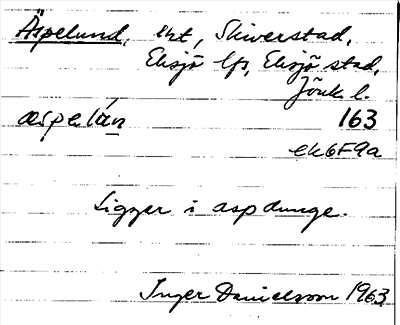 Äspelund, lht, Skiverstad,
Eksjö lfs, Eksjö stad,
Jönk l.
æspelán 163
ek6F9a
Ligger i aspdunge.
Inger Danielsson 1963